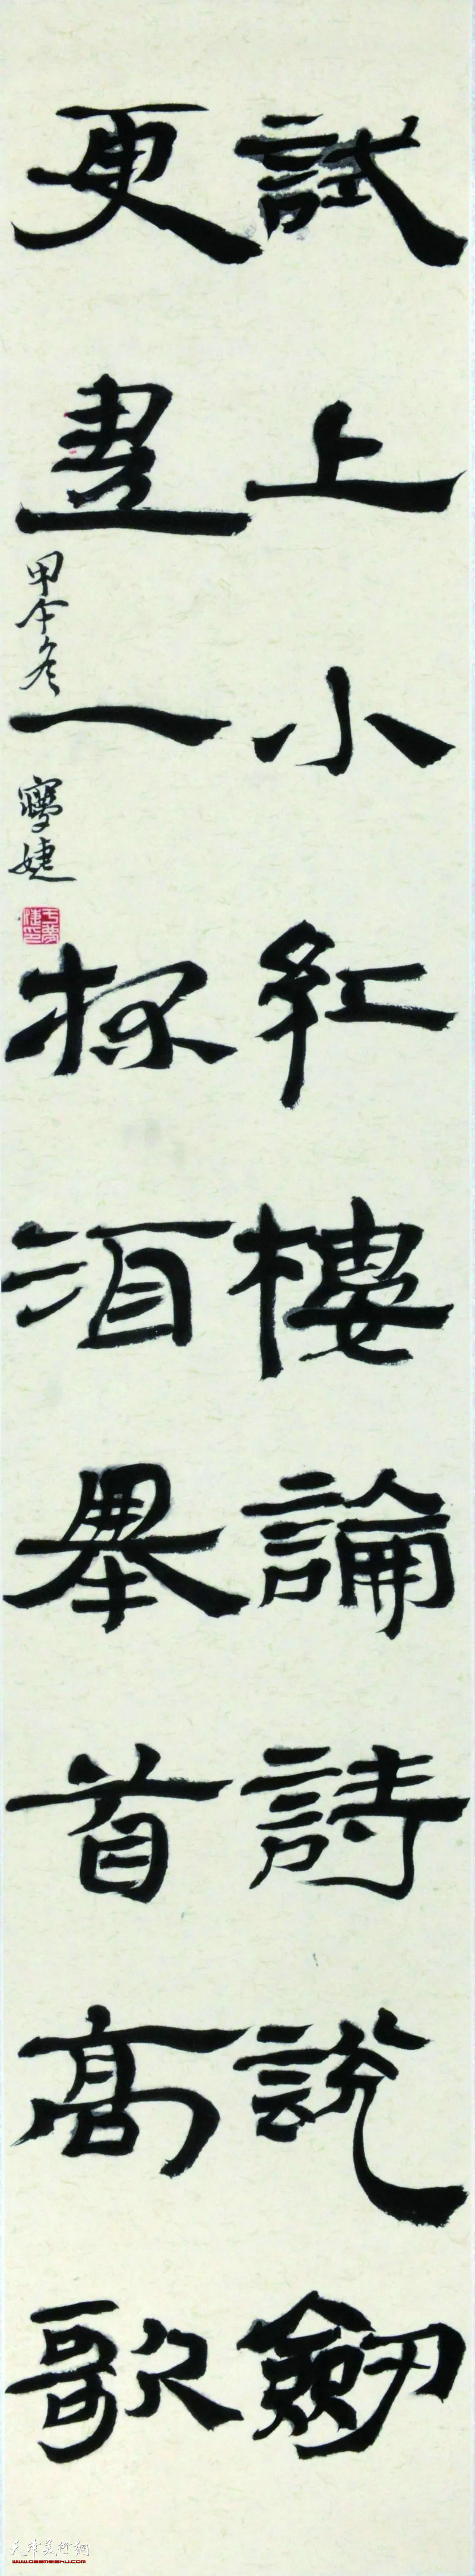 試上小紅樓論詩說劒
更盡一杯酒舉首高歌
甲午冬
夢婕
天津美術網
www.022meishu.com